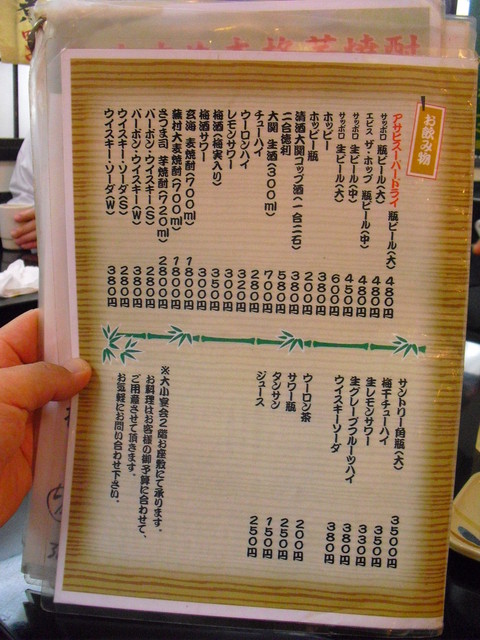 お飲み物
アサヒスーパードライ 瓶ビール(大) 480円
サッポロ 瓶ビール(大) 480円
エビス ザ・ホップ 瓶ビール(中) 480円
サッポロ 生ビール(中) 450円
サッポロ 生ビール(大) 600円
ホッピー 380円
ホッピー瓶 200円
清酒大関コップ酒(一合二石) 380円
二合徳利 580円
大関 生酒(300ml) 700円
チューハイ 280円
ウーロンハイ 320円
レモンサワー 300円
梅酒(梅実入り) 350円
梅酒サワー 300円
玄海 麦焼酎(700ml) 1800円
蔵村大麦焼酎(700ml) 1800円
さつま司 芋焼酎(720ml) 2800円
バーボン・ウイスキー(S) 280円
バーボン・ウイスキー(W) 380円
ウイスキー・ソーダ(S) 280円
ウイスキー・ソーダ(W) 380円
サントリー角瓶(大) 3500円
梅干チューハイ 350円
生レモンサワー 330円
生グレープフルーツハイ 380円
ウイスキーソーダ 380円
ウーロン茶 200円
サワー瓶 250円
タンサン 150円
ジュース 250円
※大小宴会2階お座敷にて承ります。
お料理はお客様の御予算に合わせて、
ご用意させて頂きます。
お気軽にお問い合わせ下さい。